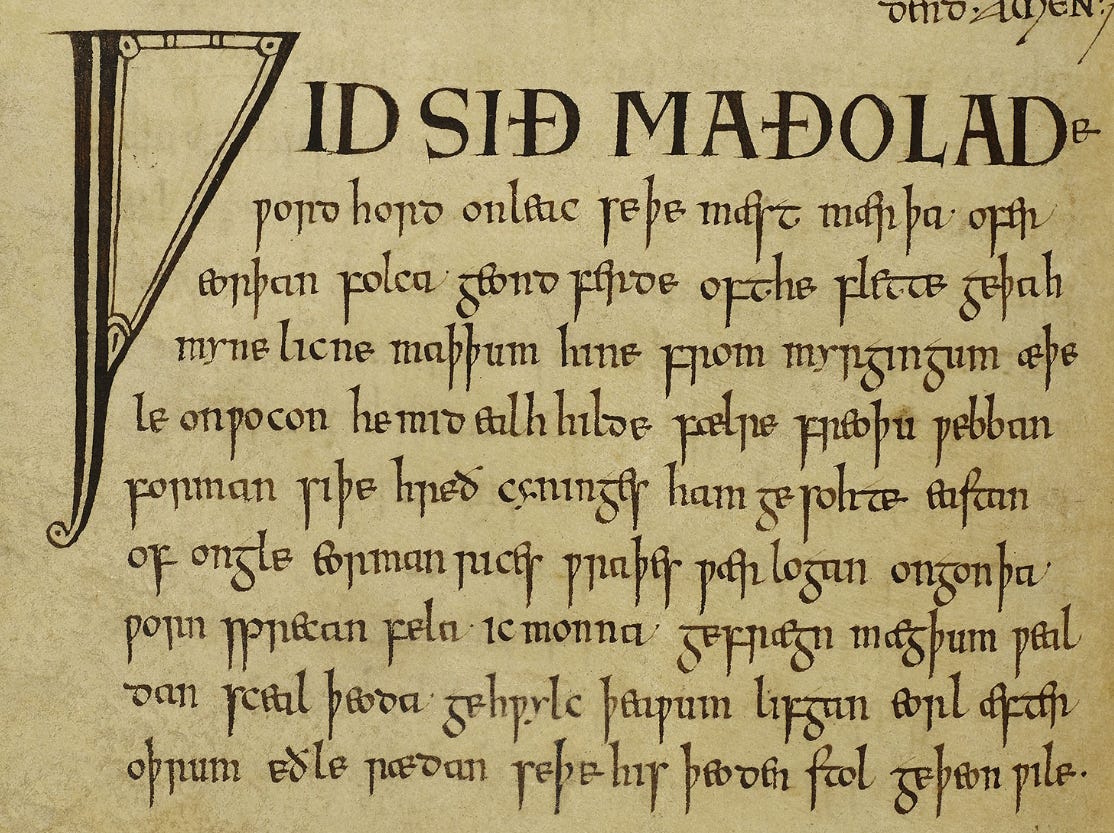 AMEN:7
ǷID SIÐ MAÐOLADe
ƿord hord onleac seþe mæst mærþa· ofer
eorþan folca· geond ferde oft he flette geþah
myne licne maþþum hine from myrgingum æþe
le onƿocon he mid ealh hilde fælre freoþu ƿebban
forman siþe hreð cyninges ham gesohte eastan
of ongle eorman rices ƿraþes ƿær logan ongon þa·
ƿorn sprecan fela· ic monna· gefrægn mægþum ƿeal
dan sceal þeoda· gehƿylc þeaƿum lifgan eorl æfter
oþrum eðle rædan seþe his þeoden stol geþeon ƿile·